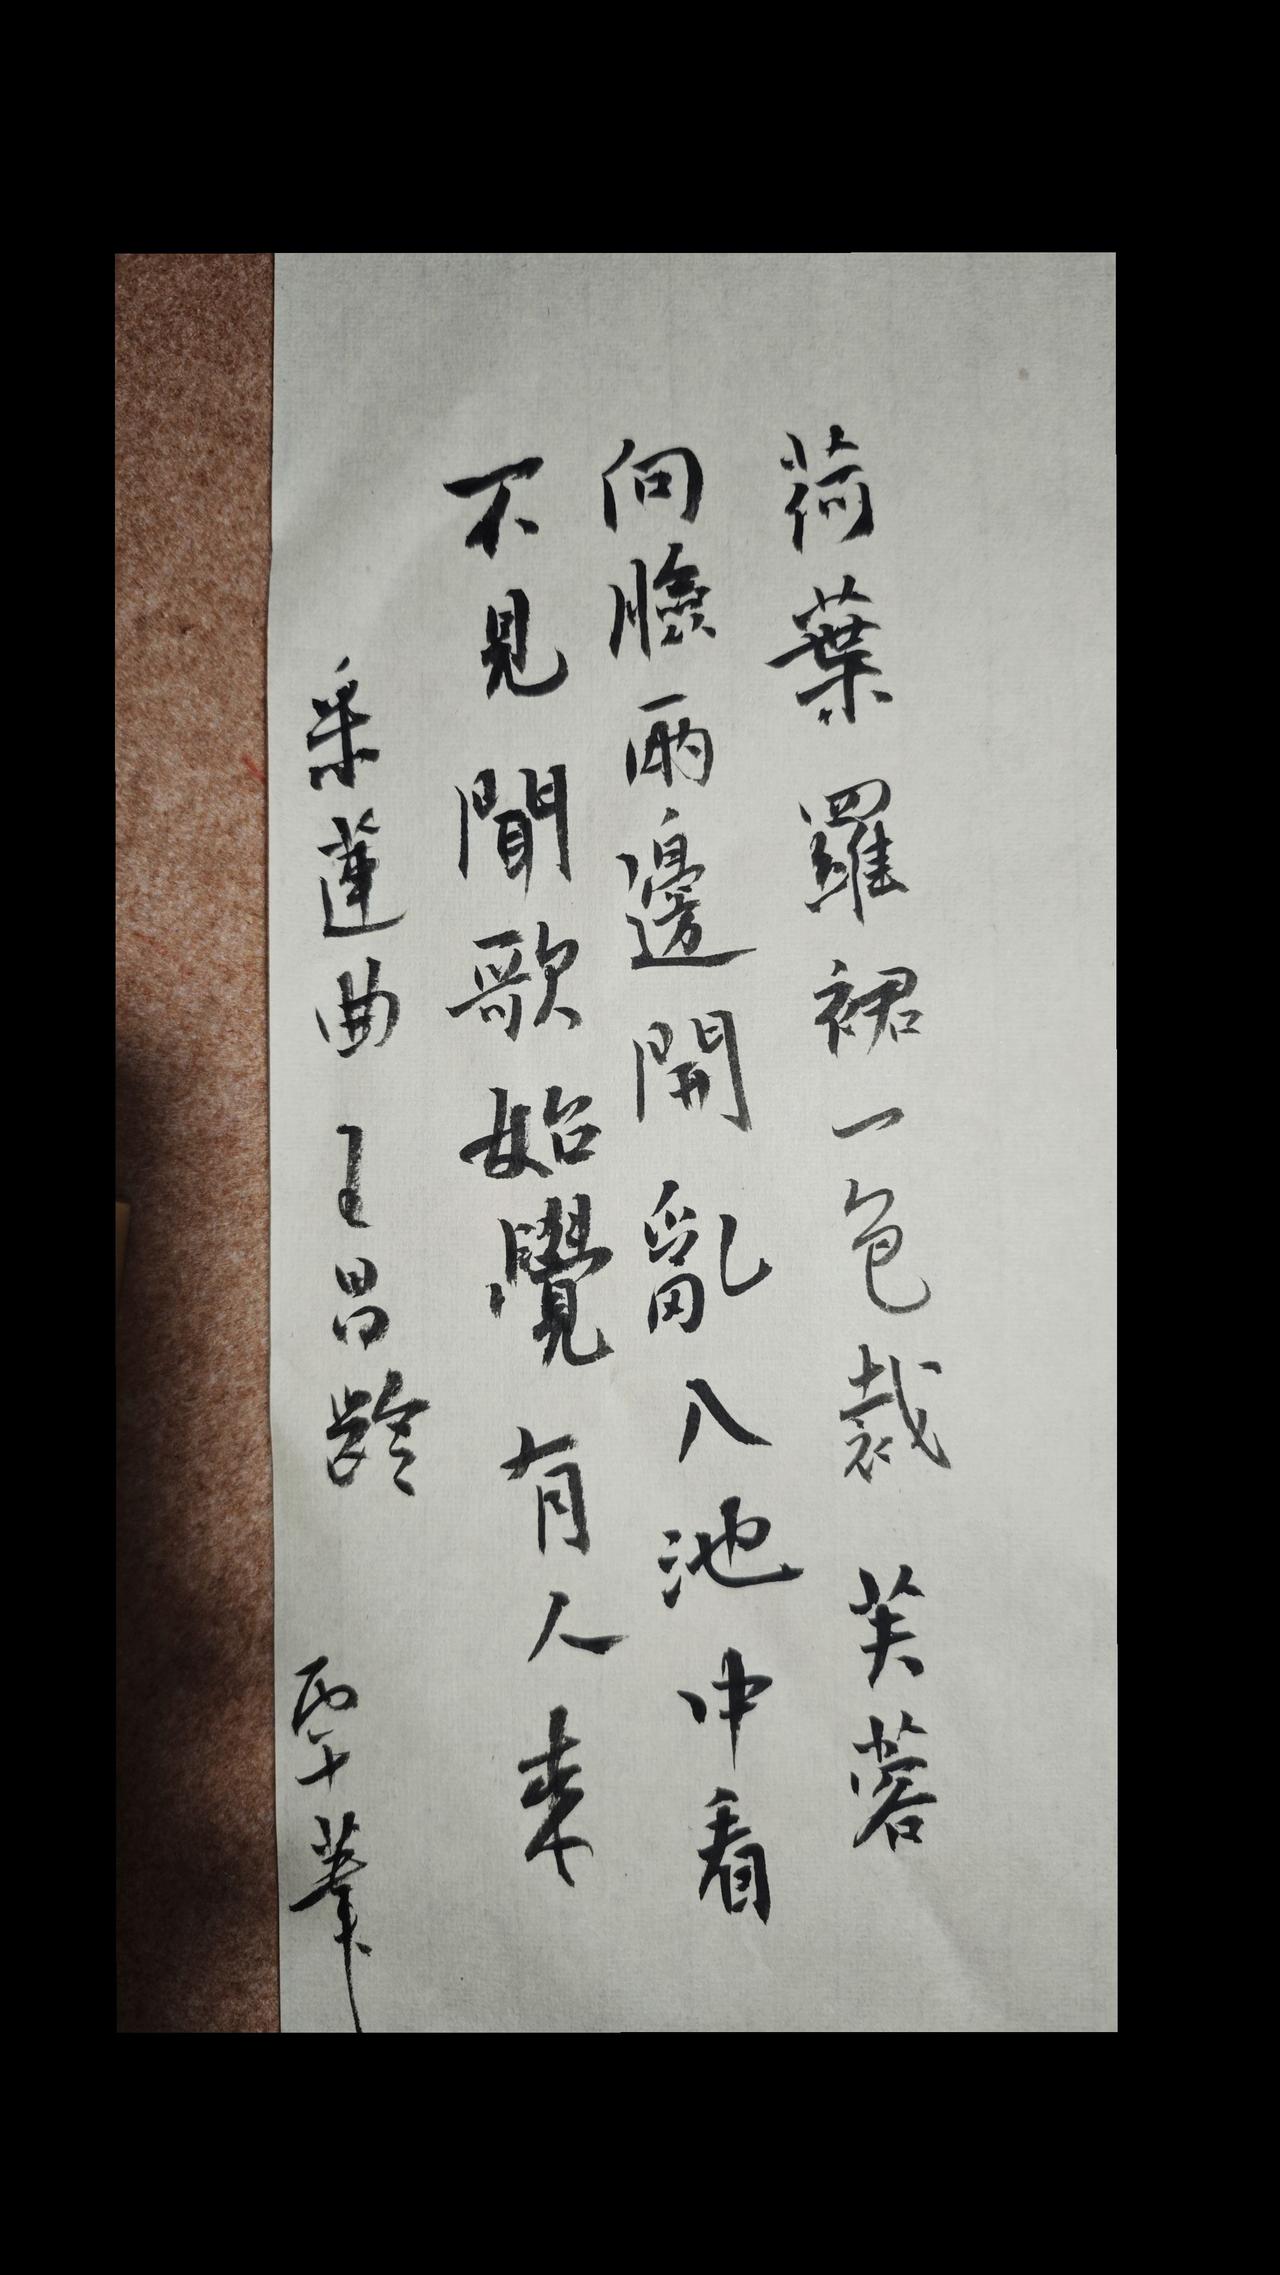 荷葉羅裙一色裁芙蓉
向臉兩邊開亂入池中看
不見聞歌始覺有人来
采蓮曲王昌齡
丙午筆